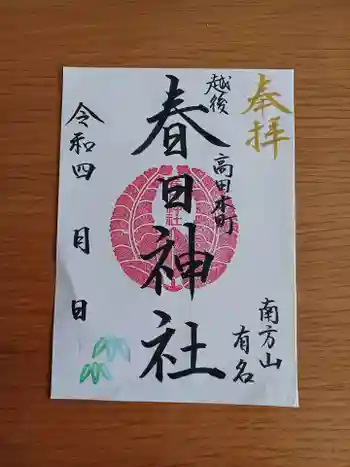 奉拝
越後
高田本町
春日神社
南方山
有名
令和四 月 日